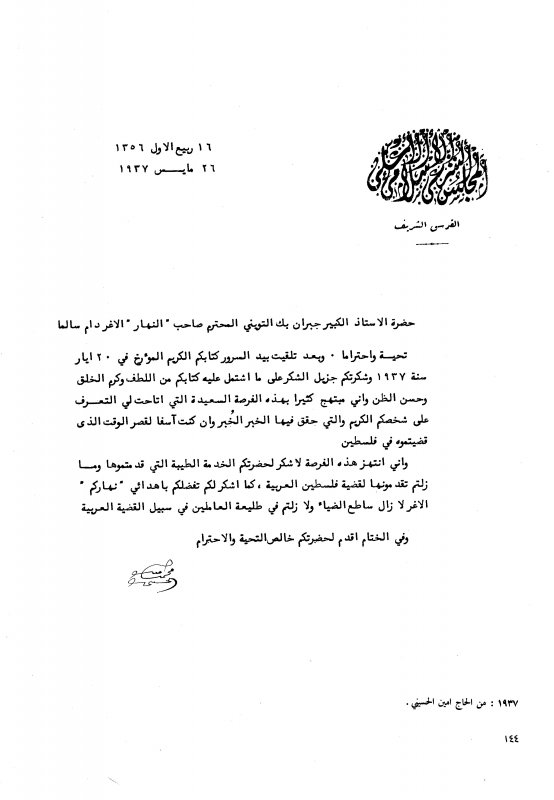 المجلس الشرعي الاسلامي الاعلى
القدس الشريف
١٦ ربيع الاول ١٣٥٦
٢٦ مايس ١٩٣٧
حضرة الاستاذ الكبير جبران بك التويني المحترم صاحب "النهار" الاغر دام سالما
تحية واحتراما ٠ وبعد تلقيت بيد السرور كتابكم الكريم المؤرخ في ٢٠ ايار
سنة ١٩٣٧ وشكرتكم جزيل الشكر على ما اشتمل عليه كتابكم من اللطف وكرم الخلق
وحسن الظن واني مبتهج كثيرا بهذه الفرصة السعيدة التي اتاحت لي التعرف
على شخصكم الكريم والتي حقق فيها الخبر الخُبر وان كنت آسفا لقصر الوقت الذى
قضيتموه في فلسطين
واني انتهز هذه الفرصة لاشكر لحضرتكم الخدمة الطيبة التي قدمتموها وما
زلتم تقدمونها لقضية فلسطين العربية ، كما اشكر لكم تفضلكم باهدائي "نهاركم"
الاغر لا زال ساطع الضياء ولا زلتم في طليعة العاملين في سبيل القضية العربية
وفي الختام اقدم لحضرتكم خالص التحية والاحترام
١٩٣٧ : من الحاج امين الحسيني .
١٤٤